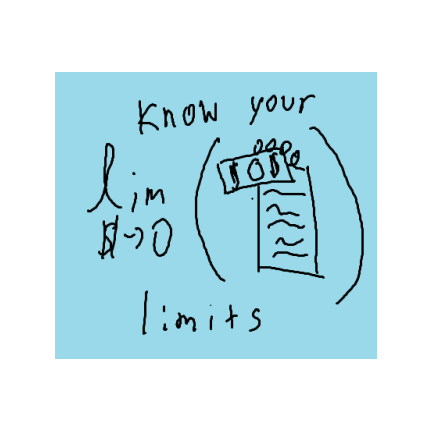 Know your
lim
$→0
$0$
limits